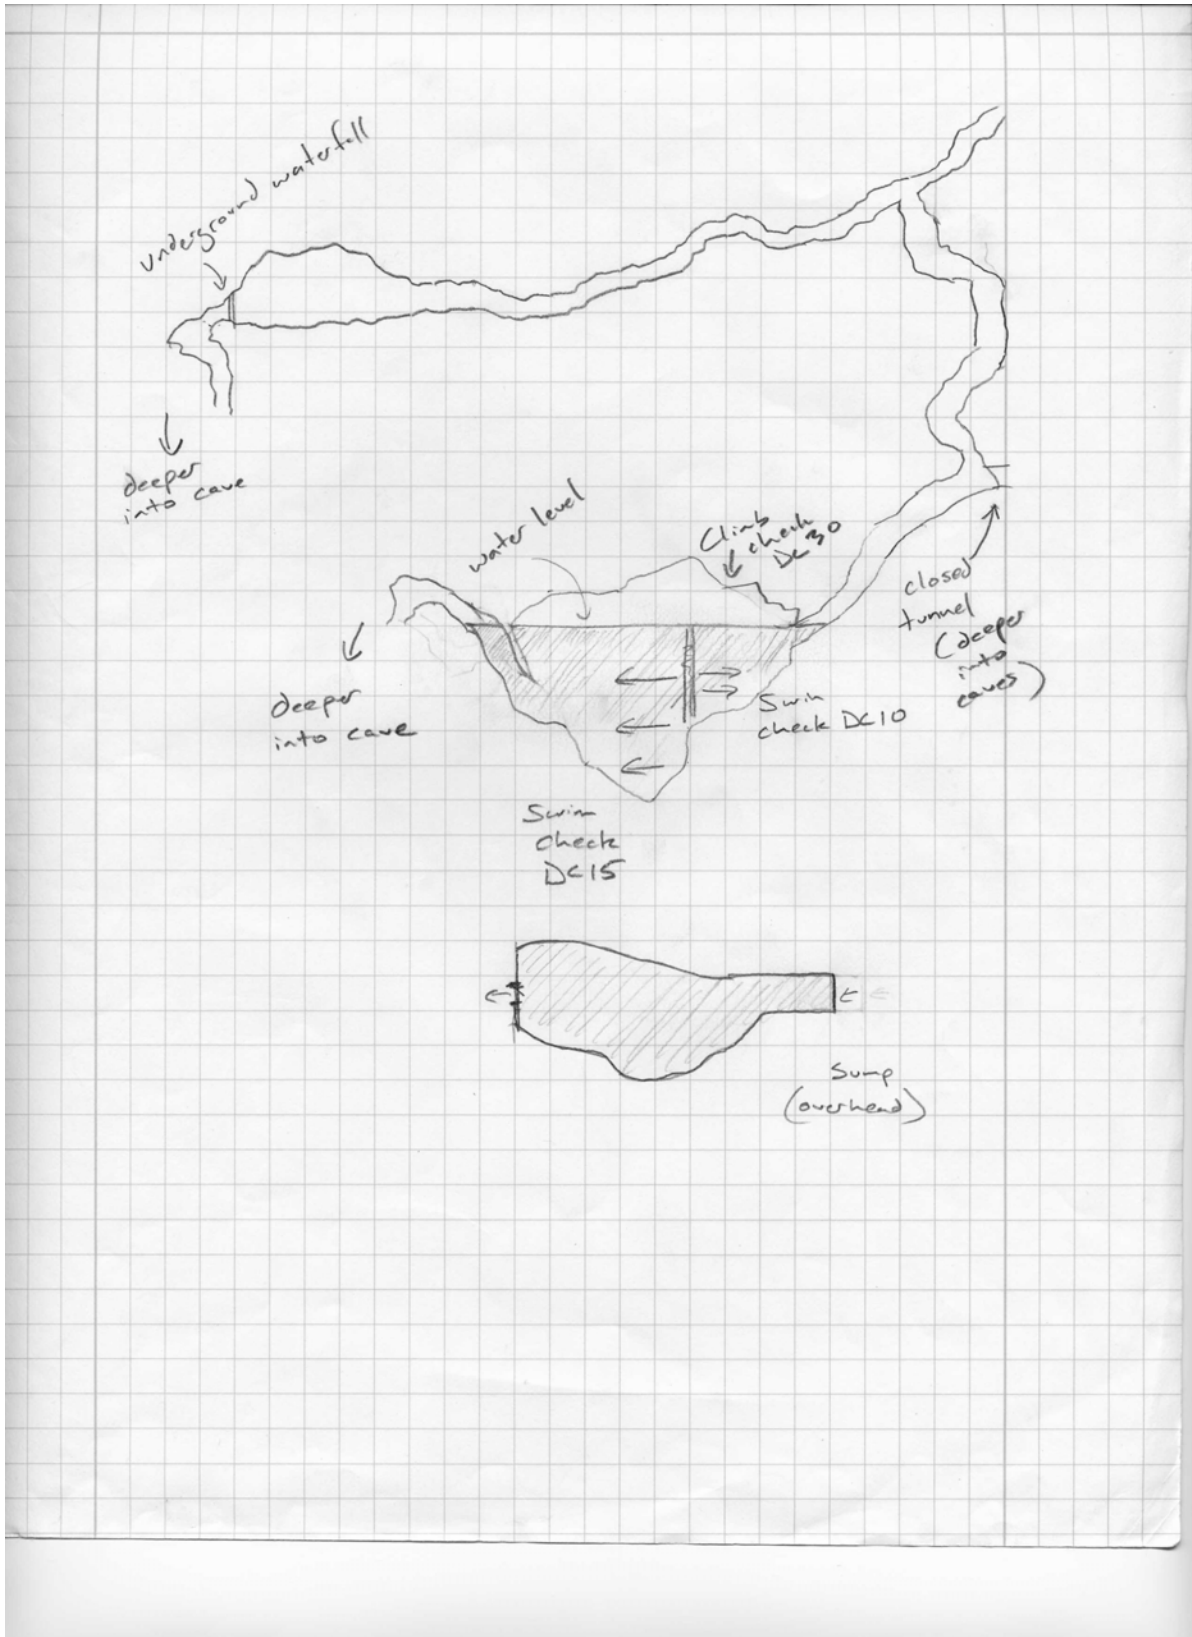 underground waterfall
deeper
into cave
water level
Climb
check
DC 30
closed
tunnel
(deeper
into
caves)
deeper
into cave
Swim
check DC10
Swim
check
DC15
Sump
(overhead)